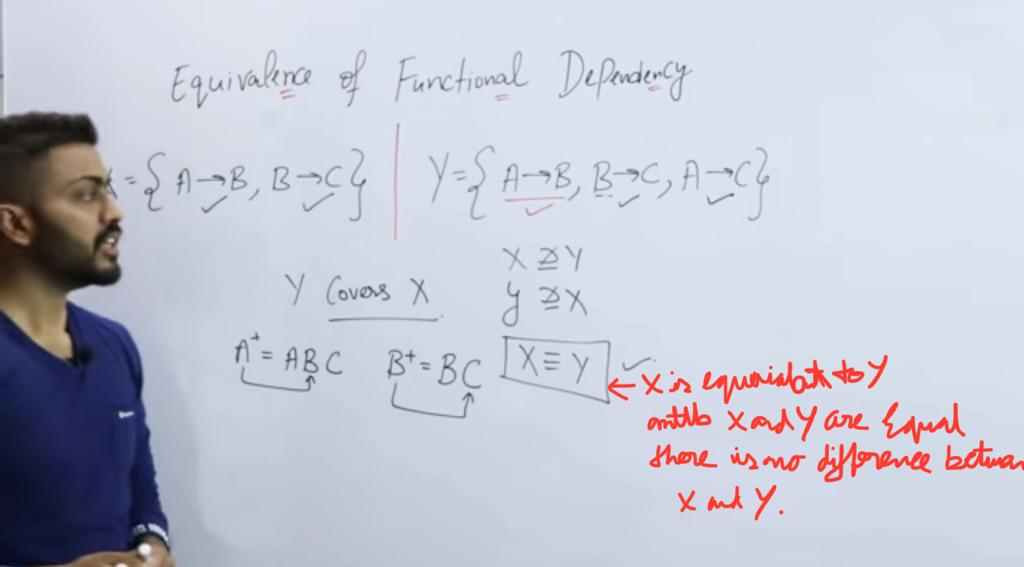 Equivalence of Functional Dependency
= { A→B, B→C }
Y = { A→B, B→C, A→C }
X ⊇ Y
Y Covers X
Y ⊇ X
A⁺ = ABC
B⁺ = BC
X ≡ Y
← X is to Y
X and Y are Equal
there is no difference between
X and Y.